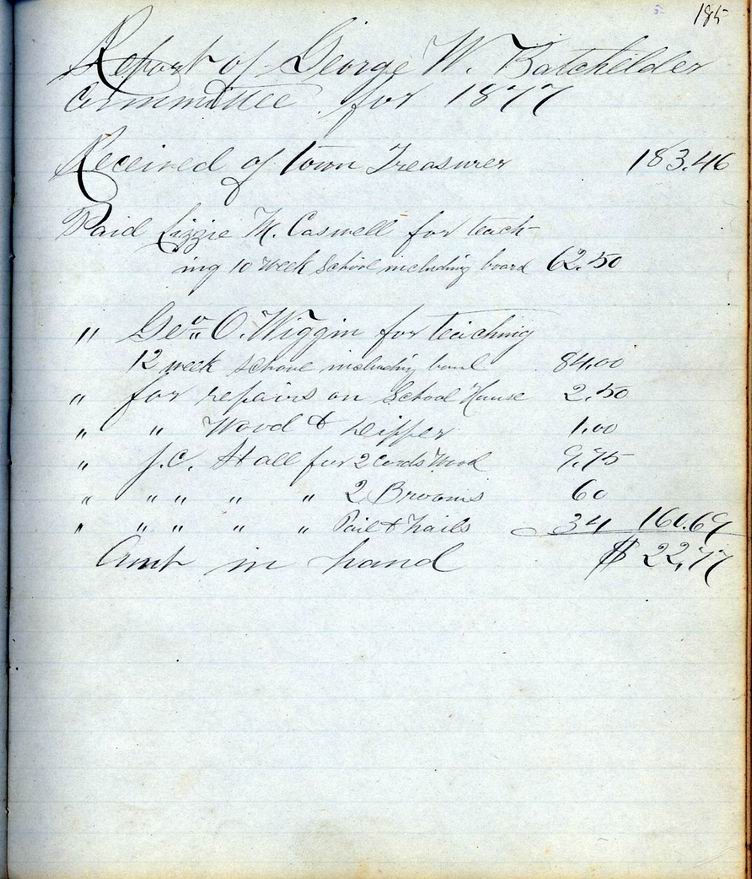 185
Report of George W. Batchelder
Committee for 1877
Received of Town Treasurer 183.46
Paid Lizzie M. Caswell for teach-
ing 10 week School including board 62.50
" Geo. O. Wiggin for teaching
12 week School including board 84.00
" for repairs on School House 2.50
" " Wood & Dipper 1.00
" J.C. Hall for 2 Cords Wood 9.75
" " " " " 2 Brooms 60
" " " " " Pail & Nails 34 160.69
Amt in hand $ 22.77